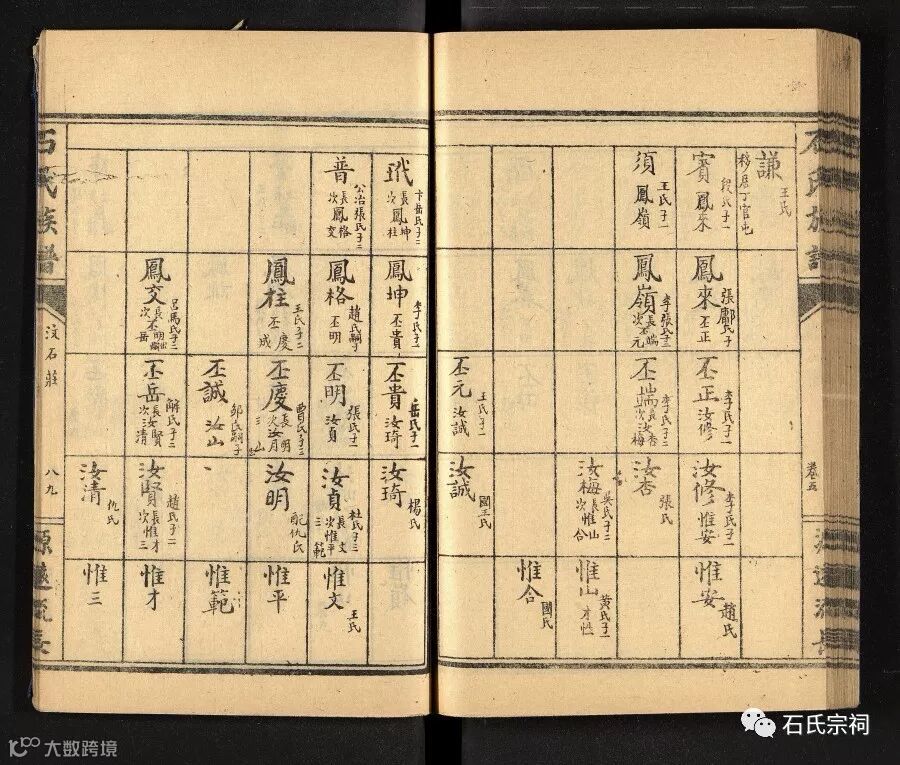 石氏族譜
卷五
源遠流長
謙
王氏
移居丁官屯
賓
段氏子一
鳳來
須
王氏子一
鳳嶺
鳳來
張鄺氏子一
丕正
鳳嶺
李張氏子二
長丕端
次丕元
丕正
李氏子一
汝修
丕端
李氏子二
長汝杏
次汝梅
丕元
王氏子一
汝誠
汝修
李氏子一
惟安
汝杏
張氏
汝梅
吳氏子二
長惟山
次惟合
汝誠
國王氏
惟安
趙氏
惟山
黃氏子一
才性
惟合
國氏
玳
卞岳氏子二
長鳳坤
次鳳柱
普
公治張氏子二
長鳳格
次鳳交
鳳坤
李氏子一
丕貴
鳳格
趙氏嗣子
丕明
鳳柱
王氏子二
丕慶
丕成
鳳交
呂馬氏子二
長丕明出嗣
次丕岳
丕貴
岳氏子一
汝琦
丕明
張氏子一
汝貞
丕慶
曹氏子三
長汝明
次汝月
三汝山
丕誠
鄒氏嗣子
汝山
丕岳
解氏子二
長汝賢
次汝清
汝琦
楊氏
汝貞
杜氏子三
長惟文
次惟平
三惟範
汝明
配仇氏
汝賢
趙氏子二
長惟才
次惟三
汝清
仇氏
惟文
王氏
惟平
惟範
惟才
惟三
石氏族譜
汶石莊
八九
源遠流長
石氏宗祠
大数跨境